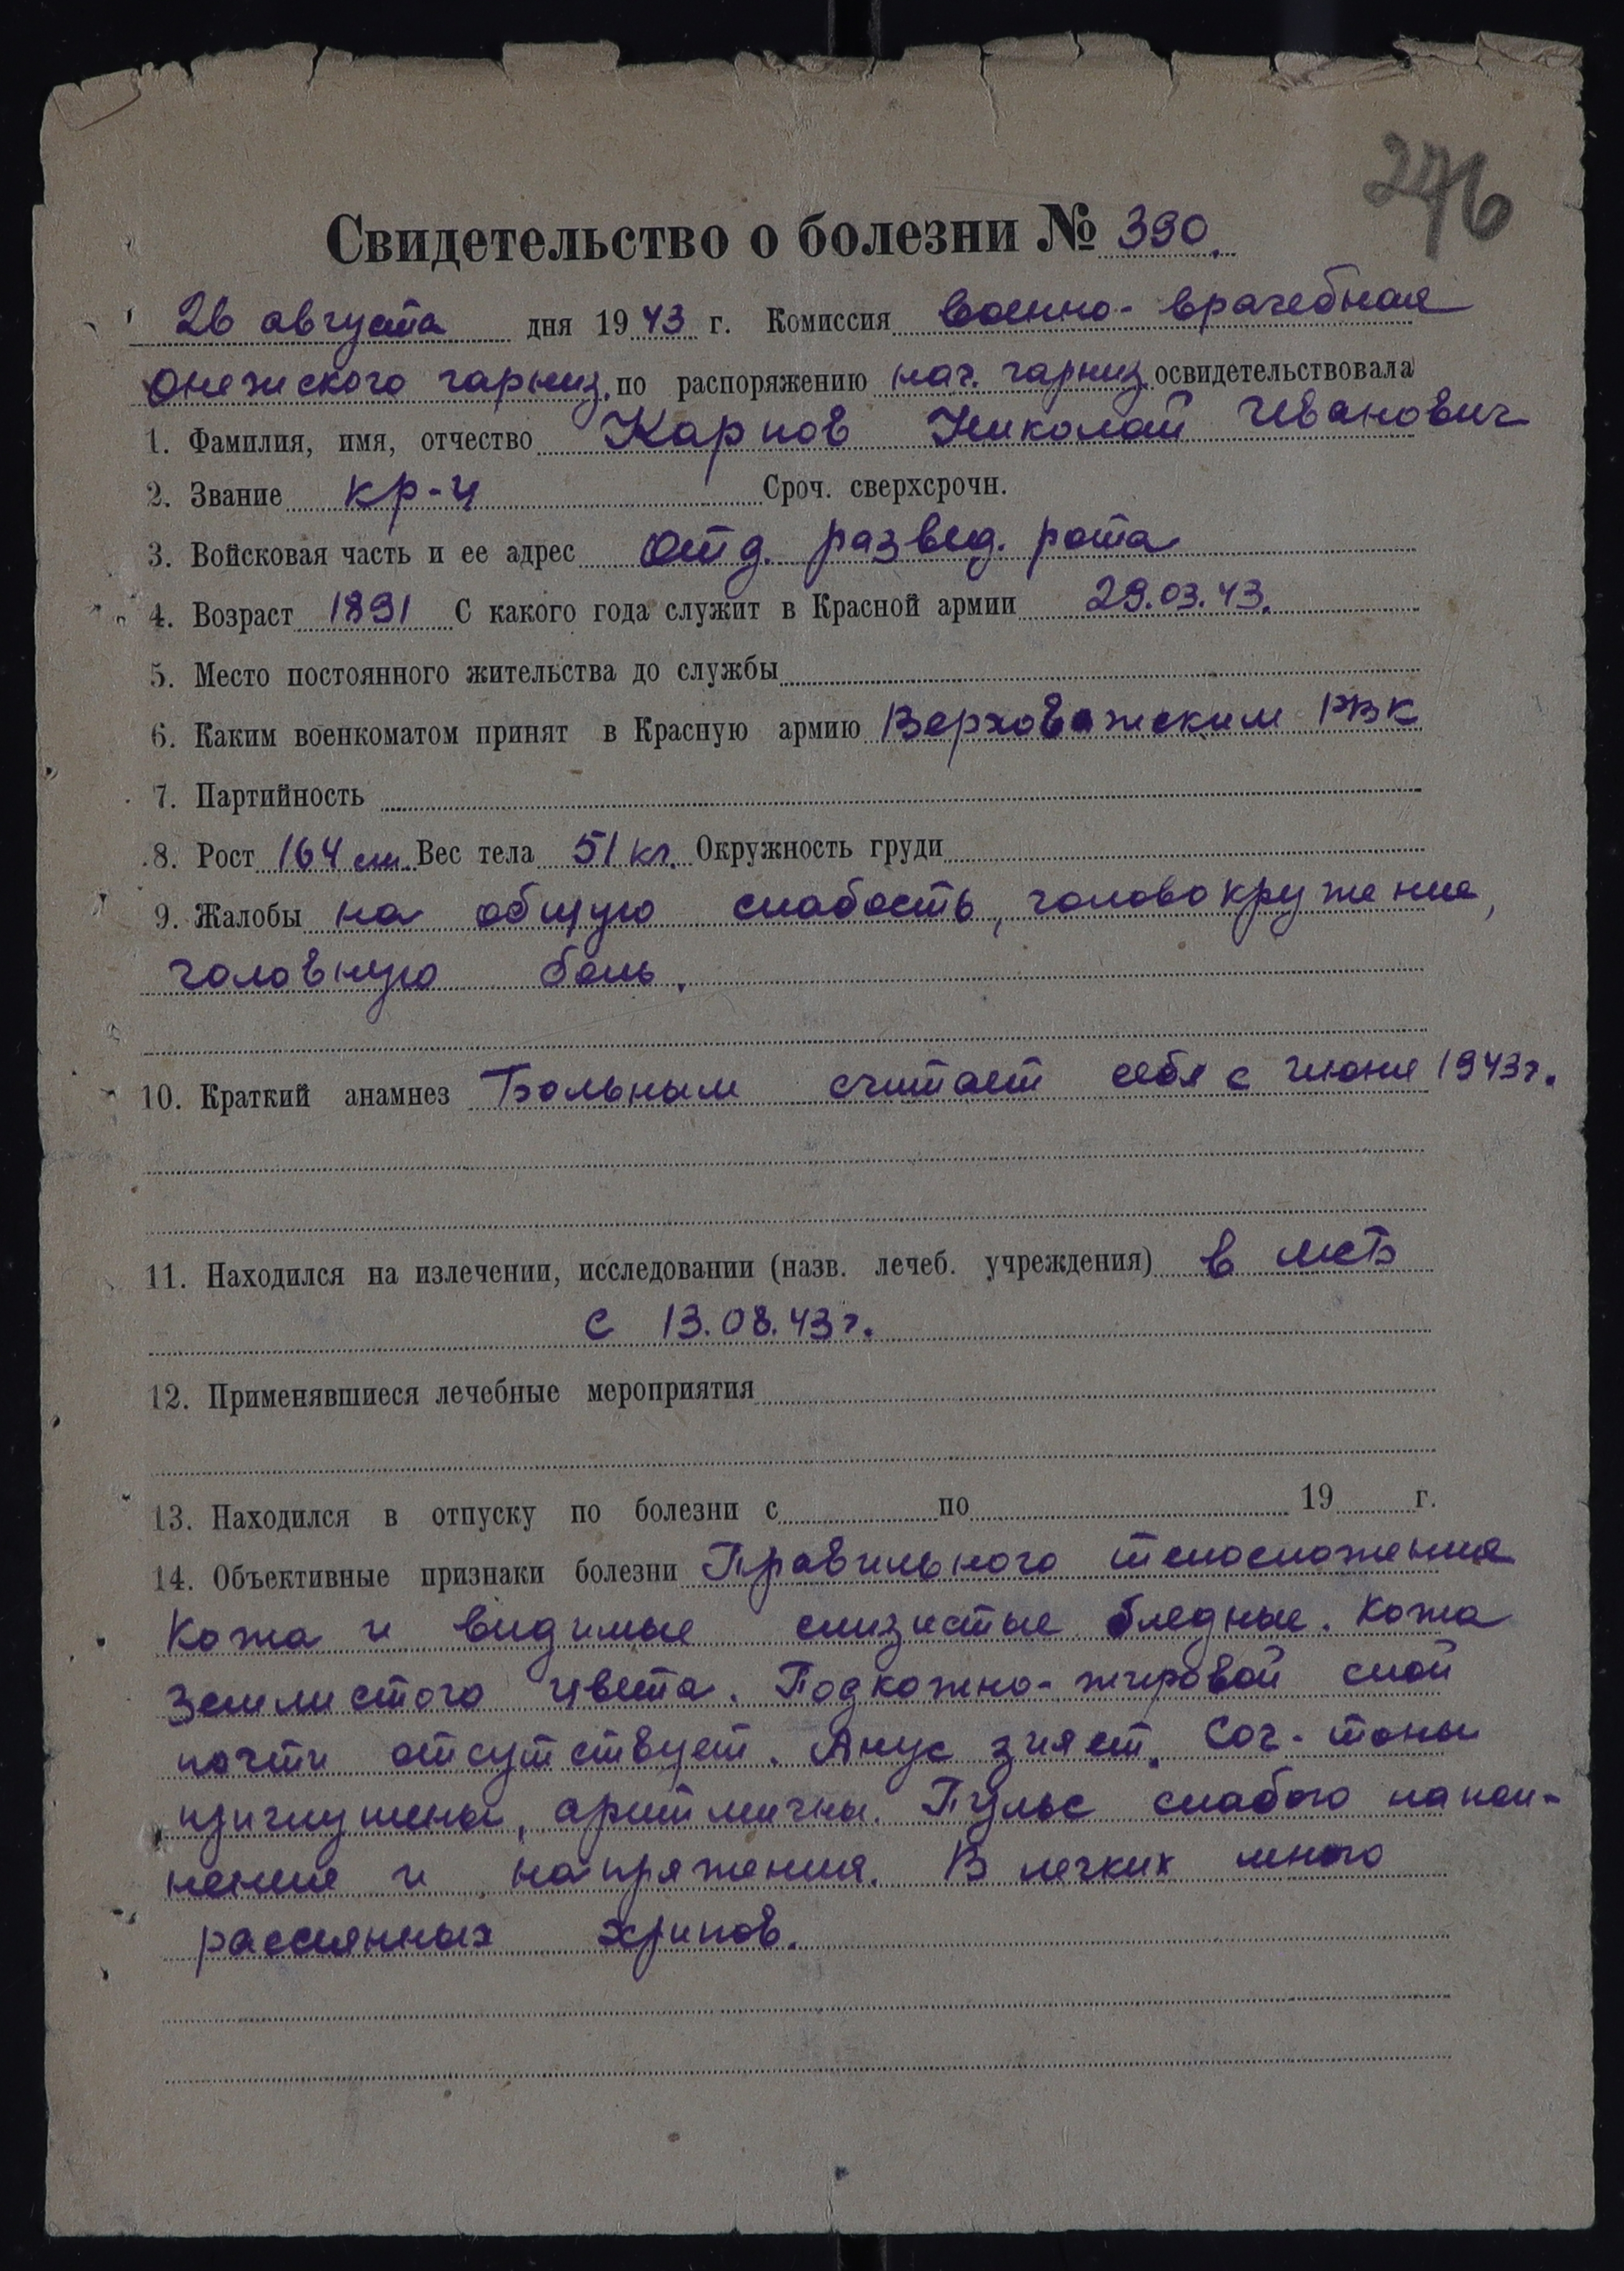 276
Свидетельство о болезни № 390.
26 августа дня 1943 г. Комиссия военно-врачебная
Онежского гарниз. по распоряжению нач. гарниз. освидетельствовала
1. Фамилия, имя, отчество Карпов Николай Иванович
2. Звание кр-ц Сроч. сверхсрочн.
3. Войсковая часть и ее адрес отд. развед. рота
4. Возраст 1891 С какого года служит в Красной армии 29.03.43.
5. Место постоянного жительства до службы
6. Каким военкоматом принят в Красную армию Верховажским РВК
7. Партийность
8. Рост 164 см. Вес тела 51 кг. Окружность груди
9. Жалобы на общую слабость, головокружение,
головную боль.
10. Краткий анамнез Больным считает себя с июня 1943г.
11. Находился на излечении, исследовании (назв. лечеб. учреждения) в МСБ
с 13.08.43г.
12. Применявшиеся лечебные мероприятия
13. Находился в отпуску по болезни с по 19 г.
14. Объективные признаки болезни Правильного телосложения
Кожа и видимые слизистые бледные. Кожа
землистого цвета. Подкожно-жировой слой
почти отсутствует. Анус зияет. Сог- тоны
приглушены, аритмичны. Пульс слабого напол-
нения и напряжения. В легких много
рассеянных хрипов.